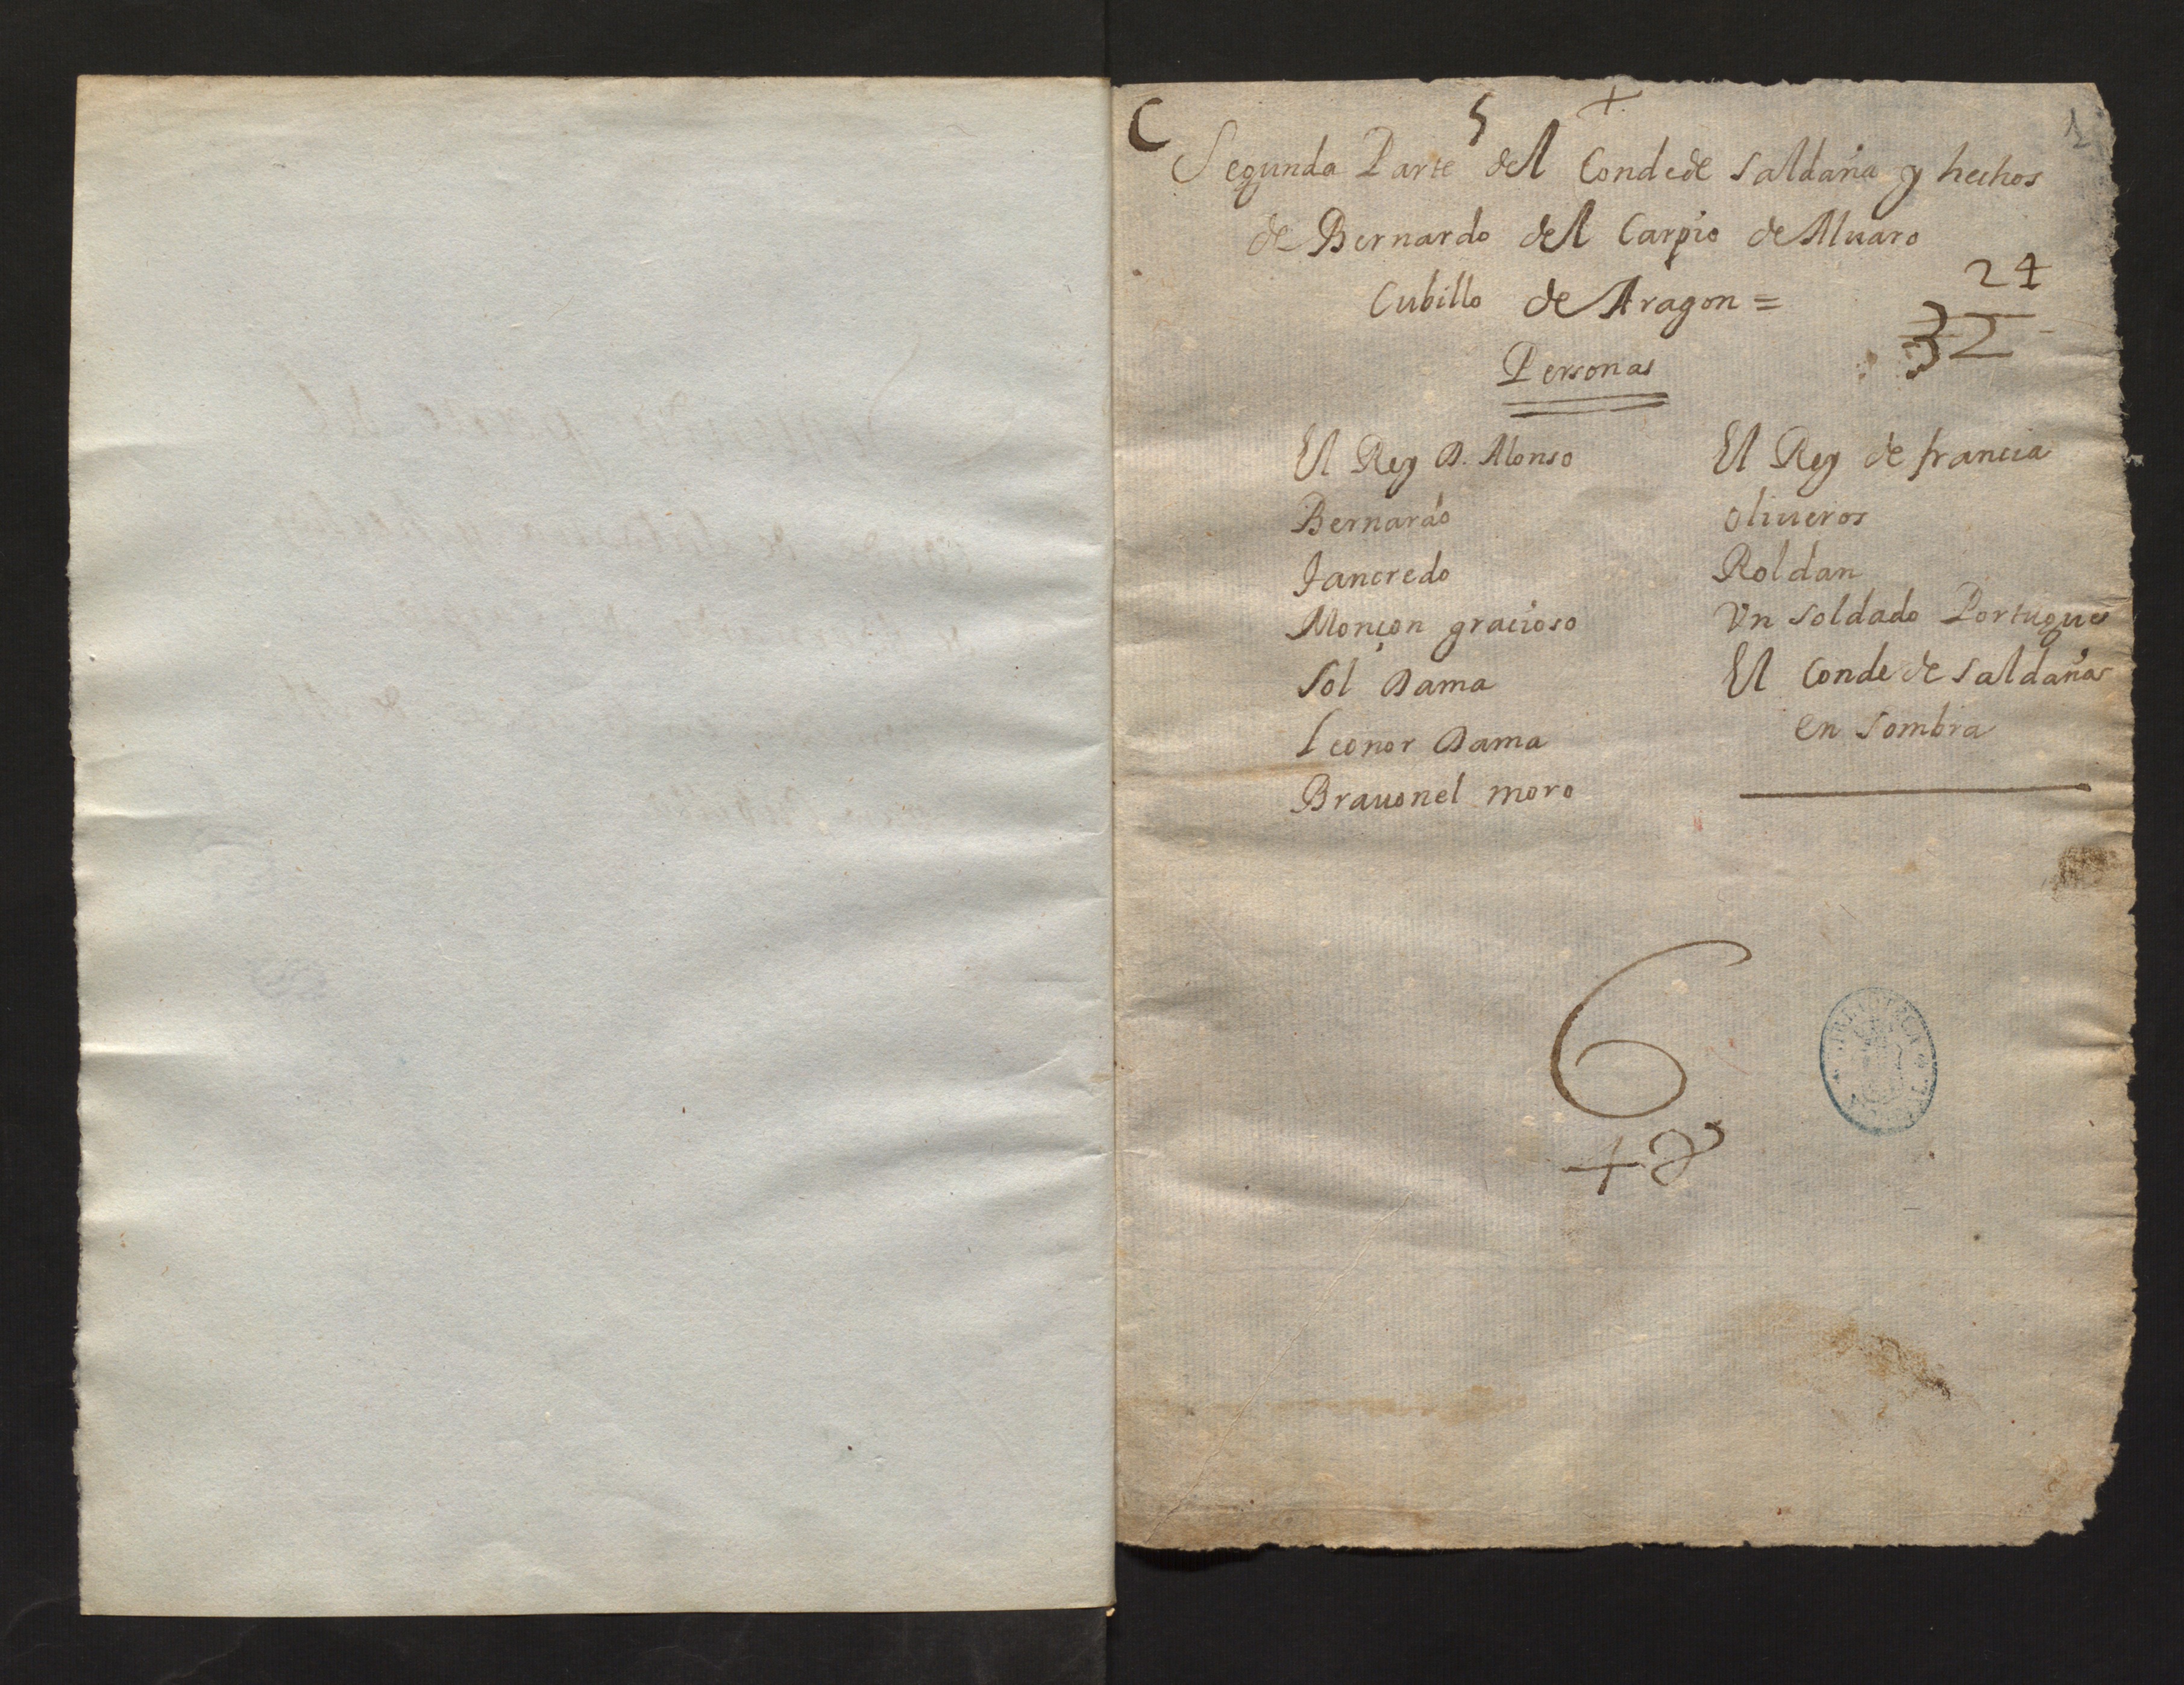 C 5 +
1
Segunda Parte del Conde de Saldaña y hechos
de Bernardo del Carpio de Aluaro
Cubillo de Aragon =
24
32
Personas
El Rey D. Alonso
Bernardo
Tancredo
Monçon gracioso
Sol Dama
Leonor Dama
Brauonel moro
El Rey de francia
Oliueros
Roldan
Vn Soldado Portugues
El Conde de Saldaña
en Sombra
6
48